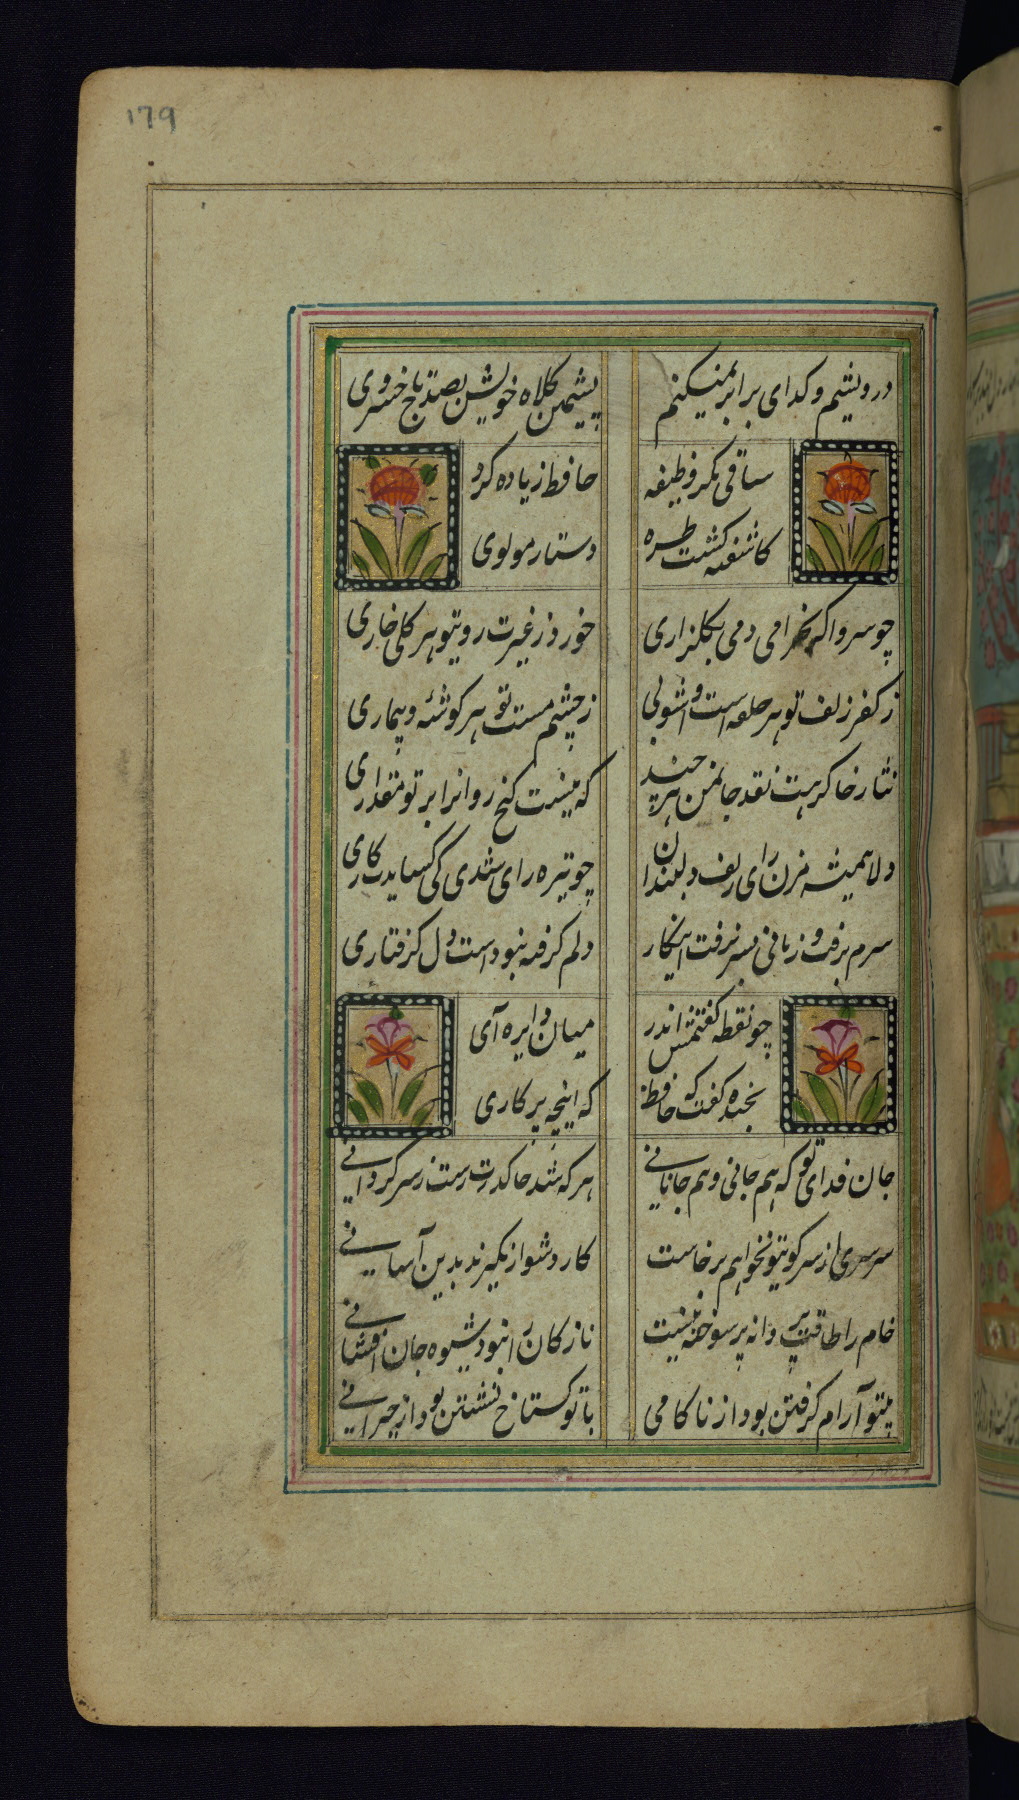 179
درویشم و کدای برابر نمیکنم
پشمین کلاه خویش بصد تاج خسروی
ساقی مکر وظیفه
حافظ زیاده کرد
کاشفته کشت طره
دستار مولوی
چو سرو اکر بخرامی دمی بکلزاری
خورد ز غیرت رویتو هر کلی خاری
ز کفر زلف تو هر حلقه است و آشوبی
ز چشم مست تو هر کوشئه و بیماری
نثار خاک رهت نقد جان من هر چند
که نیست کنج روانرا بر تو مقداری
دلا همیشه مزن رای زلف دلبندان
چو تیره رای شدی کی کشایدت کاری
سرم برفت و زمانی بسر نرفت اینکار
دلم کرفت و نبودست دل کرفتاری
چو نقطه کفتمش اندر
میان دایره آی
بخنده کفت که حافظ
که اینچه پرکاری
جان فدای تو که هم جانی و هم جانانی
هر که شد خاک درت رست ز سرکردانی
سرسری از سر کویتو نخواهم برخاست
کار دشوار نکیرند بدین آسانی
خام را طاقت پروانه پر سوخته نیست
نازکان را نبود شیوه جان افشانی
بیتو آرام کرفتن بود از ناکامی
با تو کستاخ نشستن بود از حیرانی